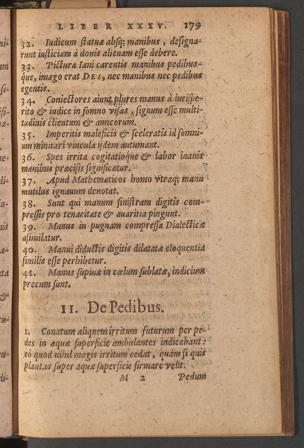 LIBER XXXV. 179
32. Iudicum statuæ absq; manibus, designa-
runt iusticiam à donis alienam esse debere.
33. Pictura Iani carentis manibus pedibus-
que, imago erat DEI, nec manibus nec pedibus
egentis.
34. Coniectores aiunt plures manus à iurispe-
rito & iudice in somno visas, signum esse multi-
tudinis clientum & amicorum.
35. Imperitis maleficis & sceleratis id somni-
um minitari vincula ijdem autumant.
36. Spes irrita cogitatioq́ue & labor inanis
manibus præcisis significatur.
37. Apud Mathematicos homo vtraq; manu
mutilus ignauum denotat.
38. Sunt qui manum sinistram digitis com-
pressis pro tenacitate & auaritia pingunt.
39. Manus in pugnam compressa Dialecticæ
assimilatur.
40. Manui diductis digitis dilatatæ eloquentia
similis esse perhibetur.
41. Manus supinæ in cœlum sublatæ, indicium
precum sunt.
11. De Pedibus.
1. Conatum aliquem irritum futurum per pe-
des in aquæ superficie ambulantes indicabant:
eò quod nihil magis irritum cedat, quàm si quis
plantas super aquæ superficie firmare velit.
M 2 Pedum